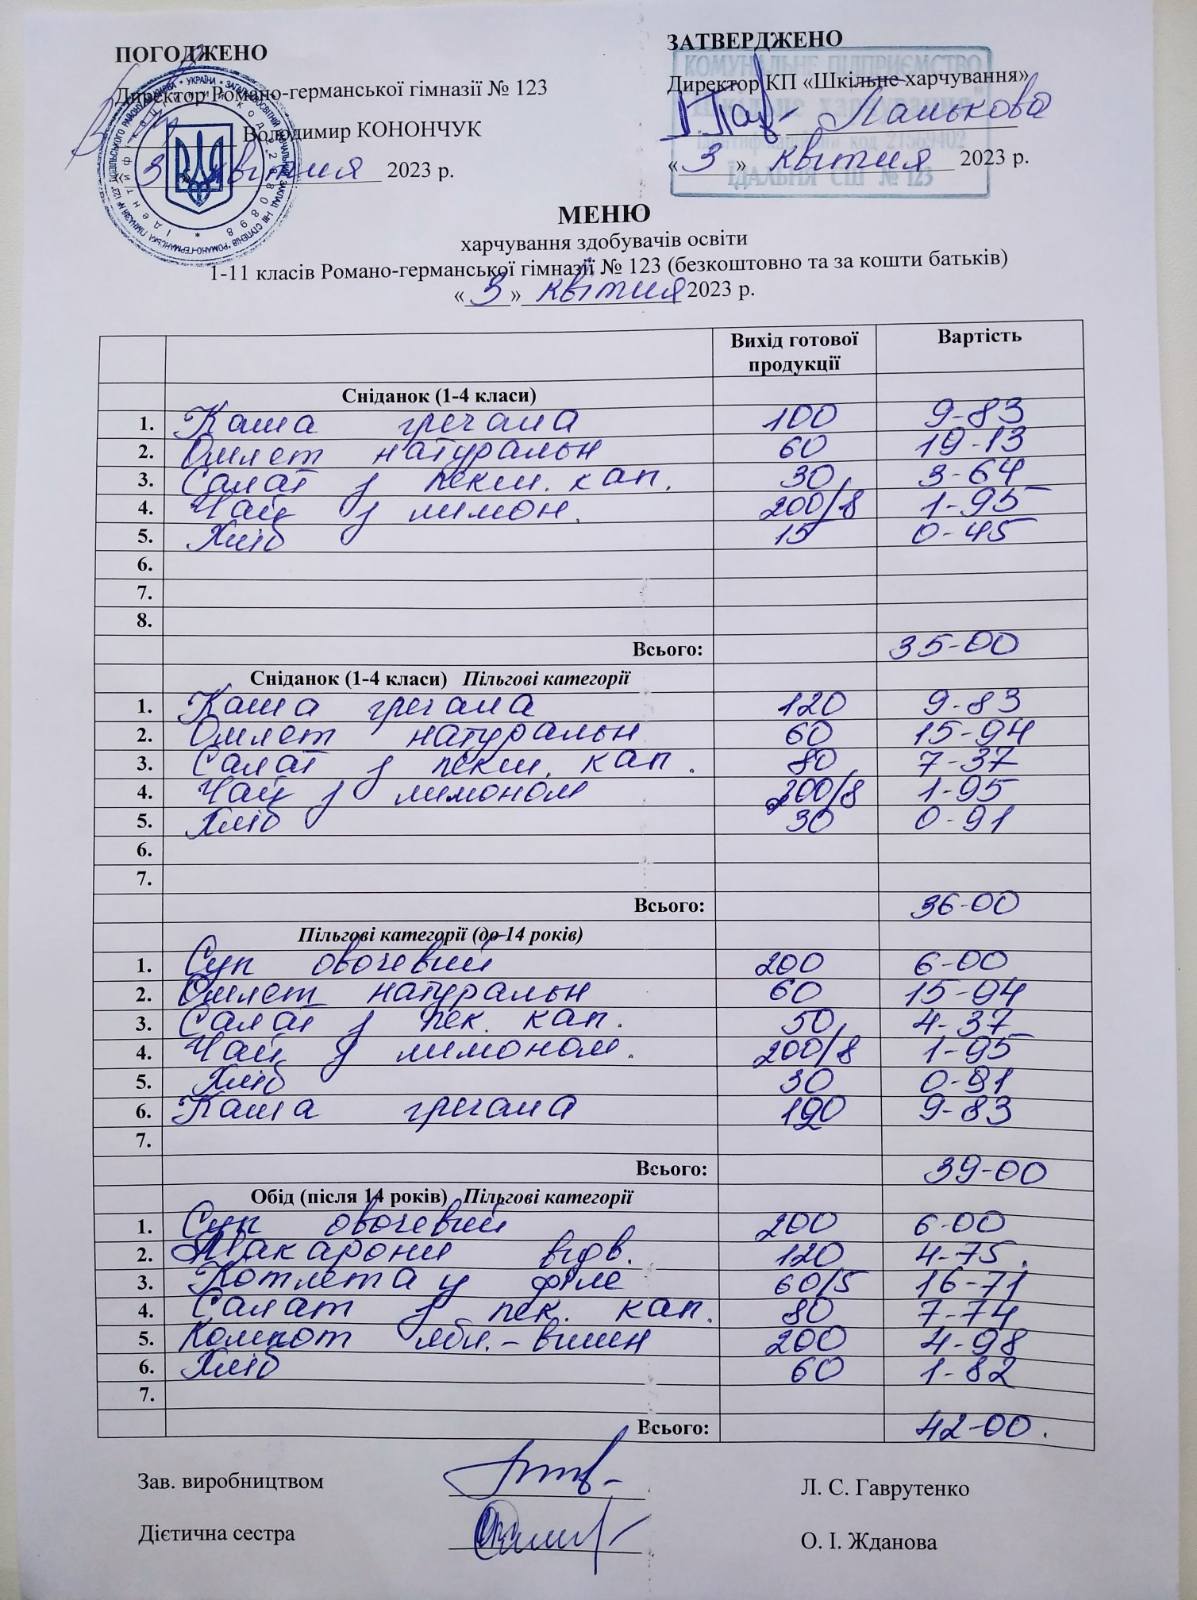 ПОГОДЖЕНО
Директор Романо-германської гімназії № 123
Володимир КОНОНЧУК
«3» квітня 2023 р.
ЗАТВЕРДЖЕНО
Директор КП «Шкільне харчування»
Панькова
«3» квітня 2023 р.
КОМУНАЛЬНЕ ПІДПРИЄМСТВО
"Шкільне харчування"
ЇДАЛЬНЯ СШ № 123
МЕНЮ
харчування здобувачів освіти
1-11 класів Романо-германської гімназії № 123 (безкоштовно та за кошти батьків)
«3» квітня 2023 р.
Вихід готової продукції Вартість
Сніданок (1-4 класи)
1. Каша гречана 100 9-83
2. Омлет натуральн 60 19-13
3. Салат з пекин. кап. 30 3-64
4. Чай з лимон. 200/8 1-95
5. Хліб 15 0-45
6.
7.
8.
Всього: 35-00
Сніданок (1-4 класи) Пільгові категорії
1. Каша гречана 120 9-83
2. Омлет натуральн 60 15-94
3. Салат з пекин. кап. 80 7-37
4. Чай з лимоном 200/8 1-95
5. Хліб 30 0-91
6.
7.
Всього: 36-00
Пільгові категорії (до 14 років)
1. Суп овочевий 200 6-00
2. Омлет натуральн 60 15-94
3. Салат з пек. кап. 50 4-37
4. Чай з лимоном. 200/8 1-95
5. Хліб 30 0-91
6. Каша гречана 120 9-83
7.
Всього: 39-00
Обід (після 14 років) Пільгові категорії
1. Суп овочевий 200 6-00
2. Макарони відв. 120 4-75.
3. Котлета у філе 60/5 16-71
4. Салат з пек. кап. 80 7-74
5. Компот ябл.-вишн 200 4-98
6. Хліб 60 1-82
7.
Всього: 42-00.
Зав. виробництвом Л. С. Гаврутенко
Дієтична сестра О. І. Жданова